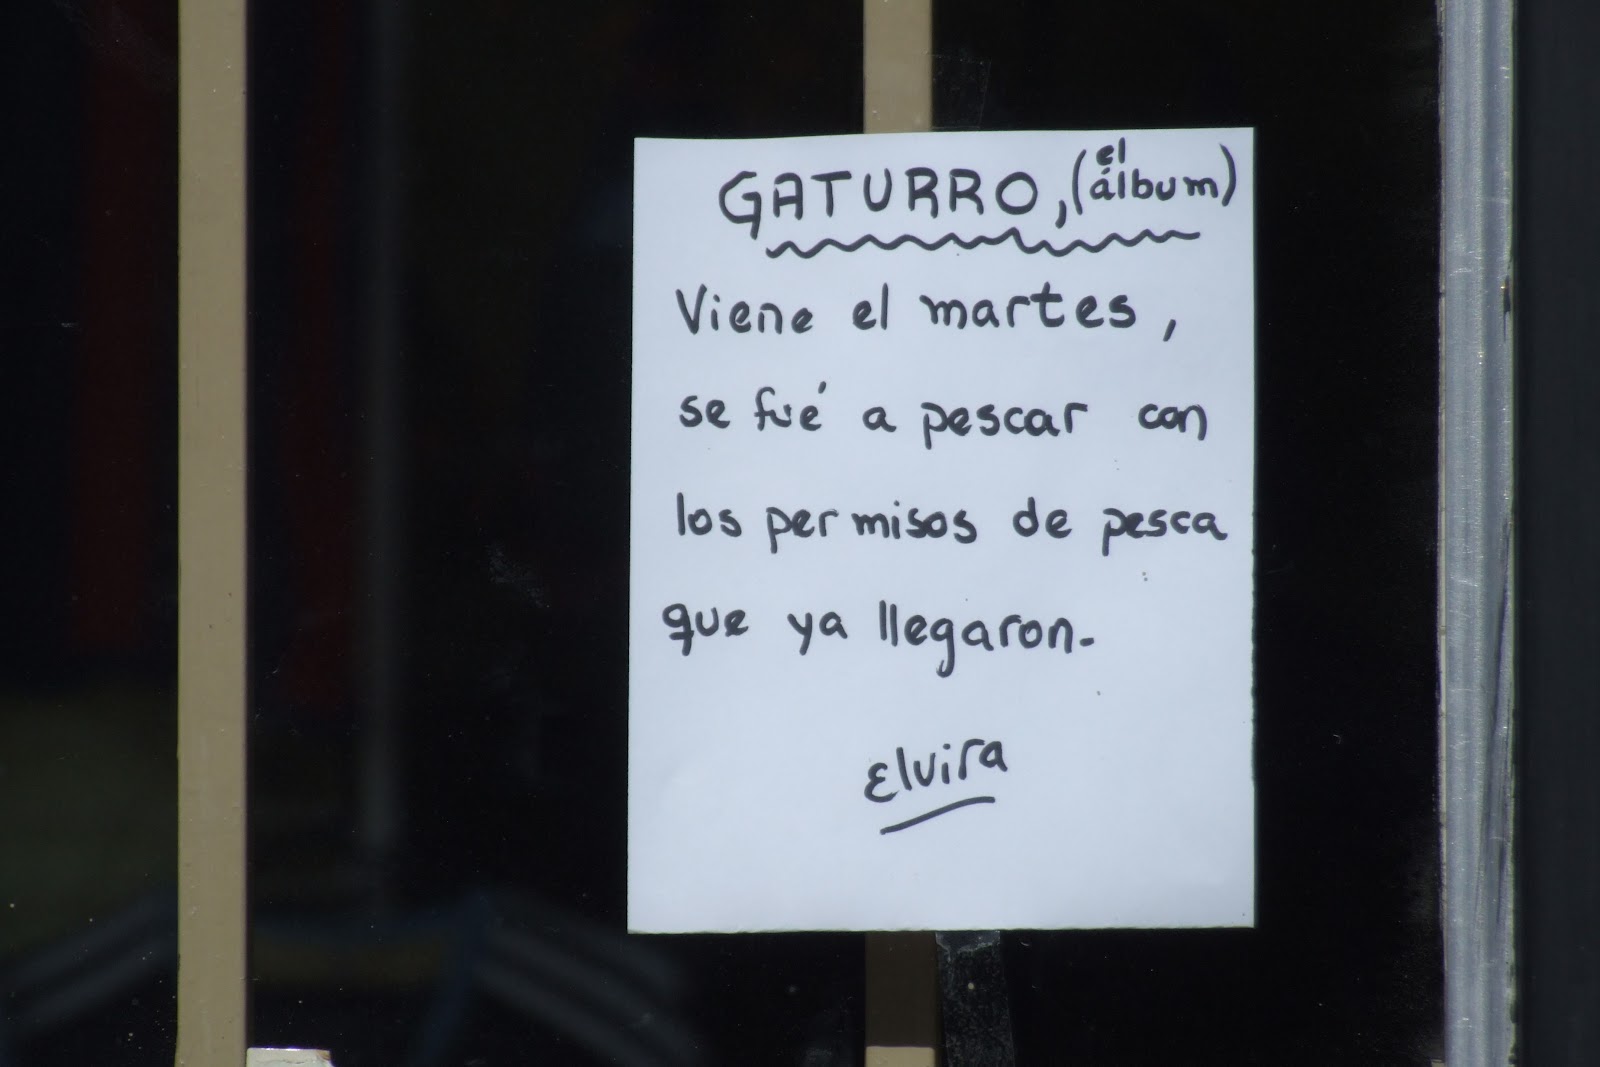 GATURRO, (el álbum)
Viene el martes,
se fué a pescar con
los permisos de pesca
que ya llegaron.
Elvira